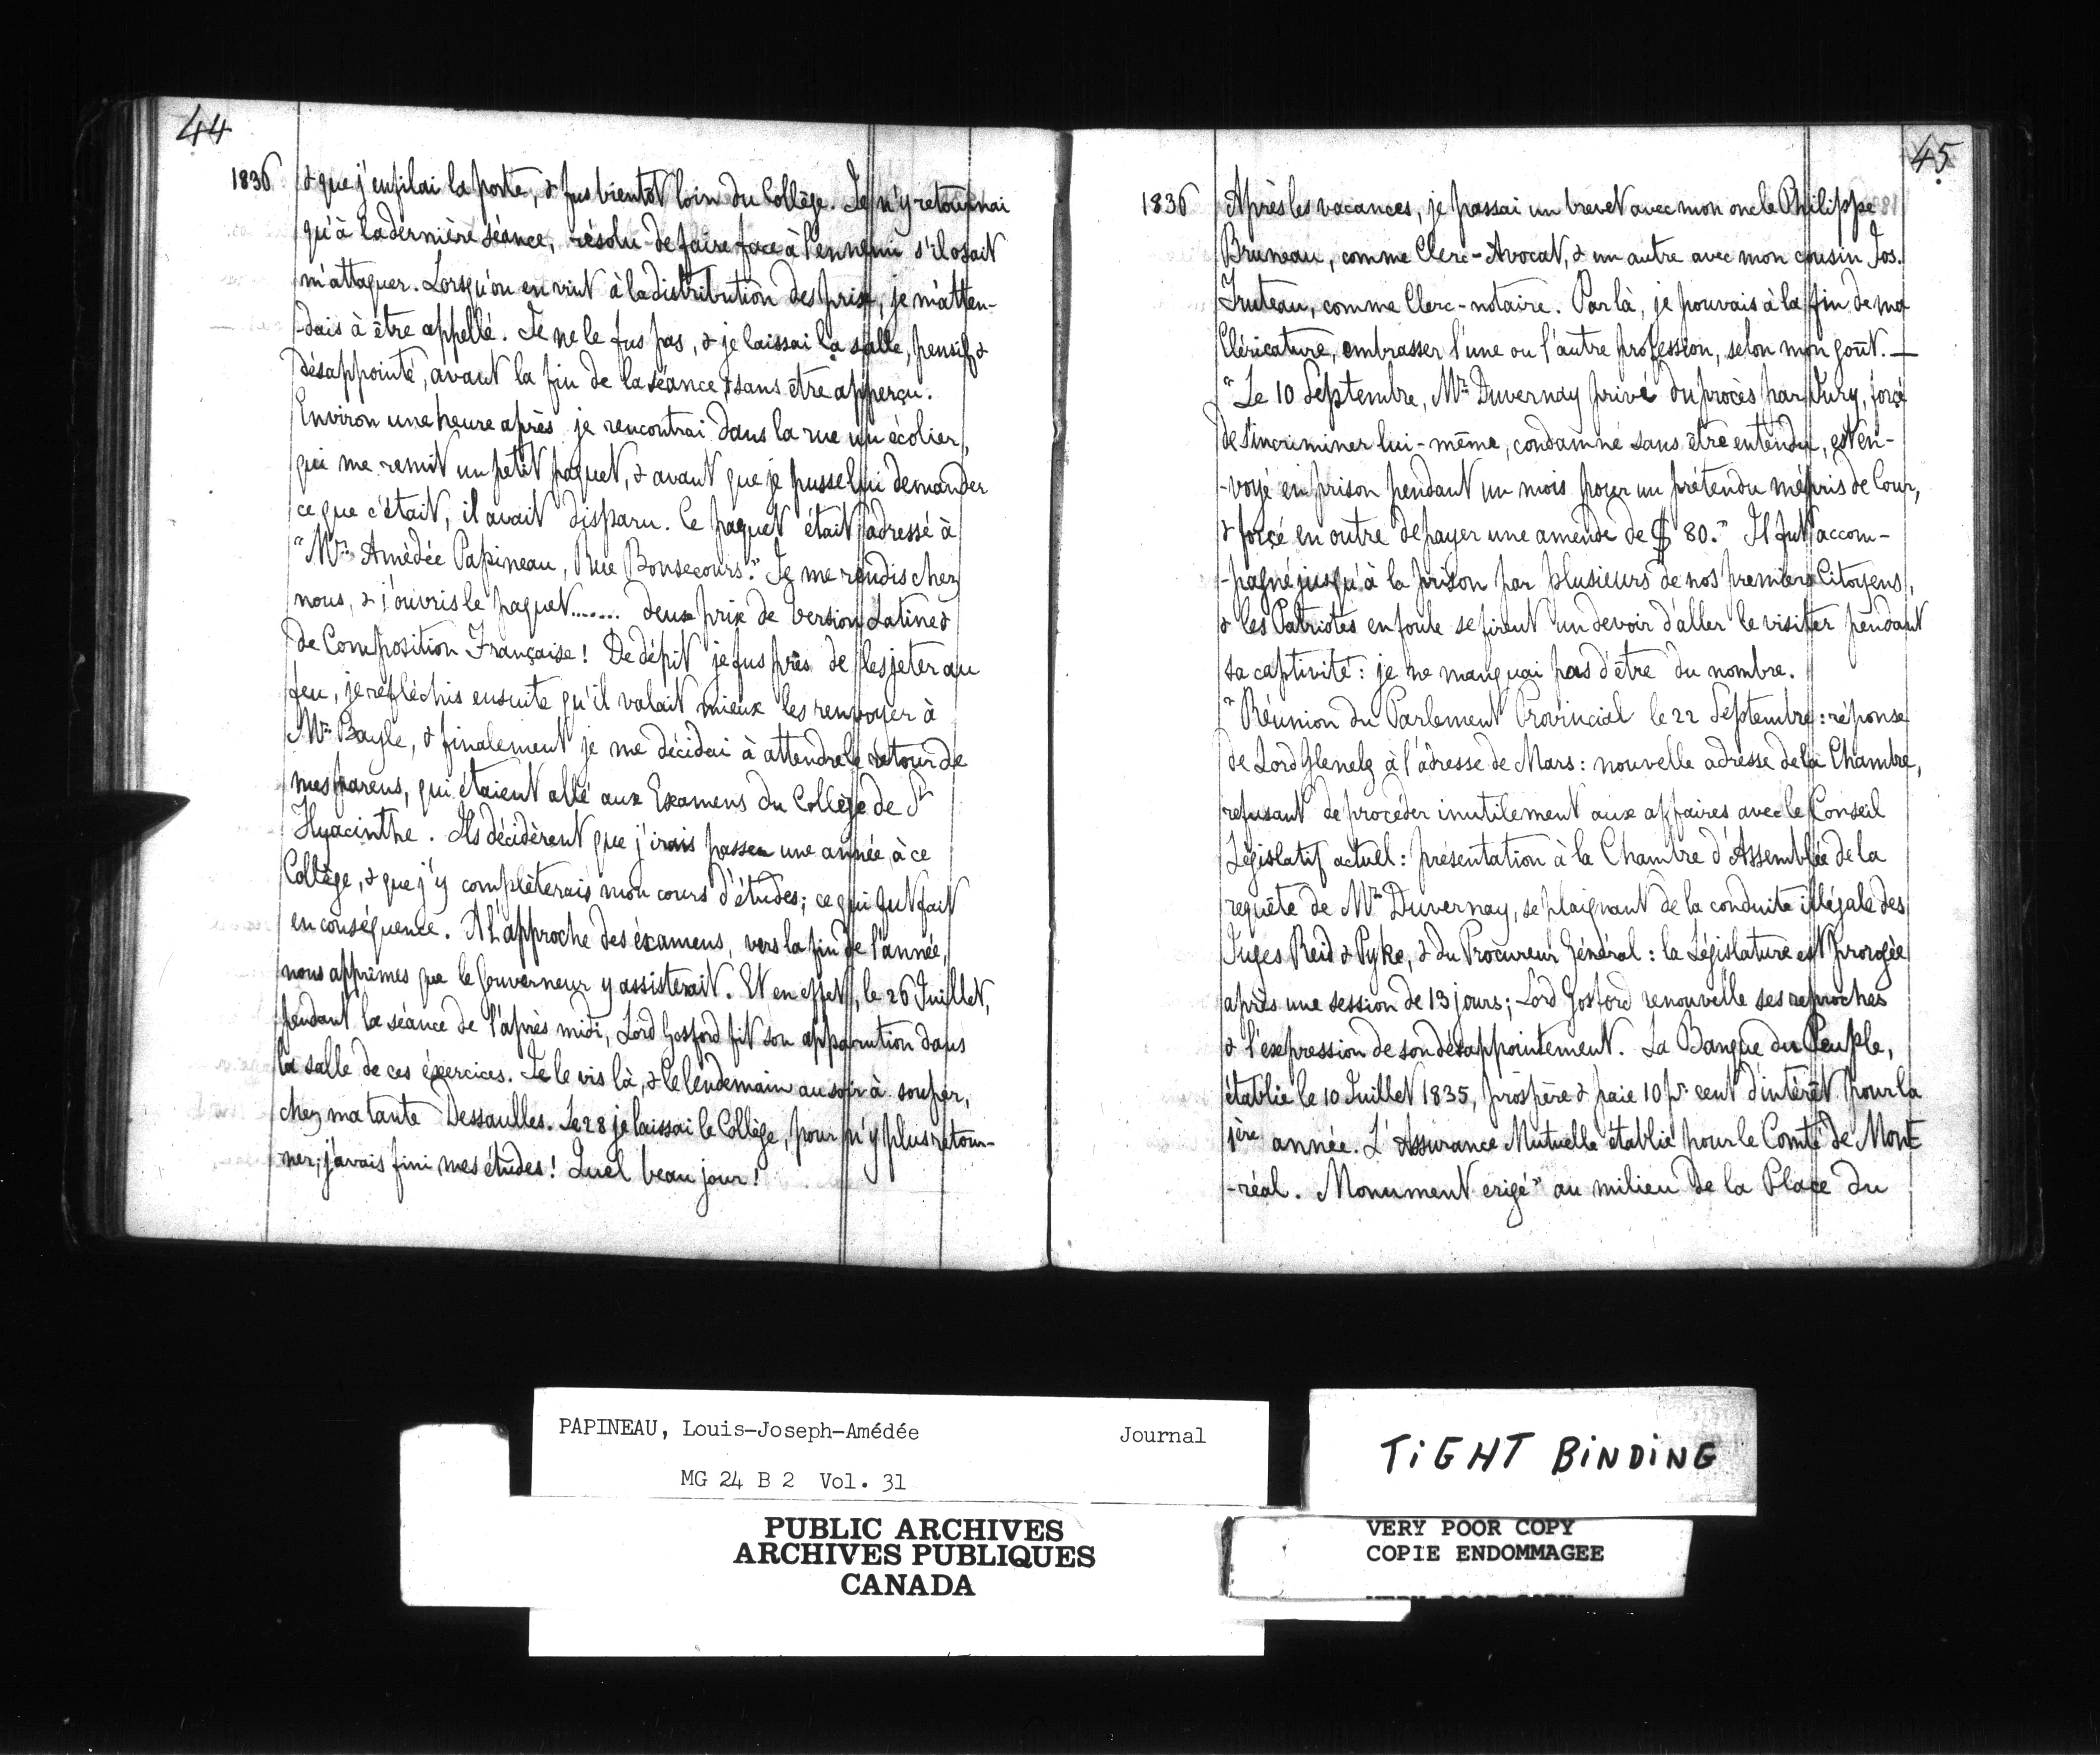 44
1836 & que j'enfilai la porte, & fus bientôt loin du Collège. Je n'y retournai
qu'à la dernière séance, résolu de faire face à l'ennemi s'il osait
m'attaquer. Lorsqu'on en vint à la distribution des prix, je m'atten-
-dais à être appellé. Je ne le fus pas, & je laissai la salle, pensif &
désappointé, avant la fin de la séance & sans être apperçu.
Environ une heure après je rencontrai dans la rue un écolier,
qui me remit un petit paquet, & avant que je pusse lui demander
ce que c'était, il avait disparu. Ce paquet était adressé à
"Mr. Amédée Papineau, Rue Bonsecours." Je me rendis chez
nous, & j'ouvris le paquet....... deux prix de version Latine &
de Composition Française! De dépit je fus près de les jeter au
feu, je réfléchis ensuite qu'il valait mieux les renvoyer à
Mr. Bayle, & finalement je me décidai à attendre le retour de
mes parens, qui étaient allé aux Examens du Collège de St
Hyacinthe. Ils décidèrent que j'irais passer une année à ce
Collège, & que j'y complèterais mon cours d'études; ce qui fut fait
en conséquence. A l'approche des éxamens, vers la fin de l'année,
nous apprîmes que le Gouverneur y assisterait. Et en effet, le 26 Juillet,
pendant la séance de l'après midi, Lord Gosford fit son apparution dans
la salle de ces éxercices. Je le vis là, & le lendemain au soir à souper,
chez ma tante Dessaulles. Le 28 je laissai le Collège, pour n'y plus retour-
ner; j'avais fini mes études! Quel beau jour!
45
1836 Après les vacances, je passai un brevet avec mon oncle Philippe
Bruneau, comme Clerc-Avocat, & un autre avec mon cousin Jos.
Truteau, comme Clerc-notaire. Par là, je pouvais à la fin de ma
Cléricature, embrasser l'une ou l'autre profession, selon mon goût. —
"Le 10 Septembre, Mr. Duvernay privé du procès par Jury, forcé
de s'incriminer lui-même, condamné sans être entendu, est en-
-voyé en prison pendant un mois pour un prétendu mépris de Cour,
& forcé en outre de payer une amende de $ 80." Il fut accom-
-pagné jusqu'à la prison par plusieurs de nos premiers Citoyens,
& les Patriotes en foule se firent un devoir d'aller le visiter pendant
sa captivité: je ne manquai pas d'être du nombre.
"Réunion du Parlement Provincial le 22 Septembre: réponse
de Lord Glenelg à l'adresse de Mars: nouvelle adresse de la Chambre,
refusant de procéder inutilement aux affaires avec le Conseil
Législatif actuel: présentation à la Chambre d'Assemblée de la
requête de Mr. Duvernay, se plaignant de la conduite illégale des
Juges Reid & Pyke, & du Procureur Général: la Législature est prorogée
après une session de 13 jours; Lord Gosford renouvelle ses reproches
& l'expression de son désappointement. La Banque du Peuple,
établie le 10 Juillet 1835, prospère & paie 10 pr cent d'intérêt pour la
1ère année. L'Assurance Mutuelle établie pour le Comté de Mont
-réal. Monument erigé" au milieu de la Place du
PAPINEAU, Louis-Joseph-Amédée Journal
MG 24 B 2 Vol. 31
PUBLIC ARCHIVES
ARCHIVES PUBLIQUES
CANADA
TiGHT BiNDiNG
VERY POOR COPY
COPIE ENDOMMAGEE